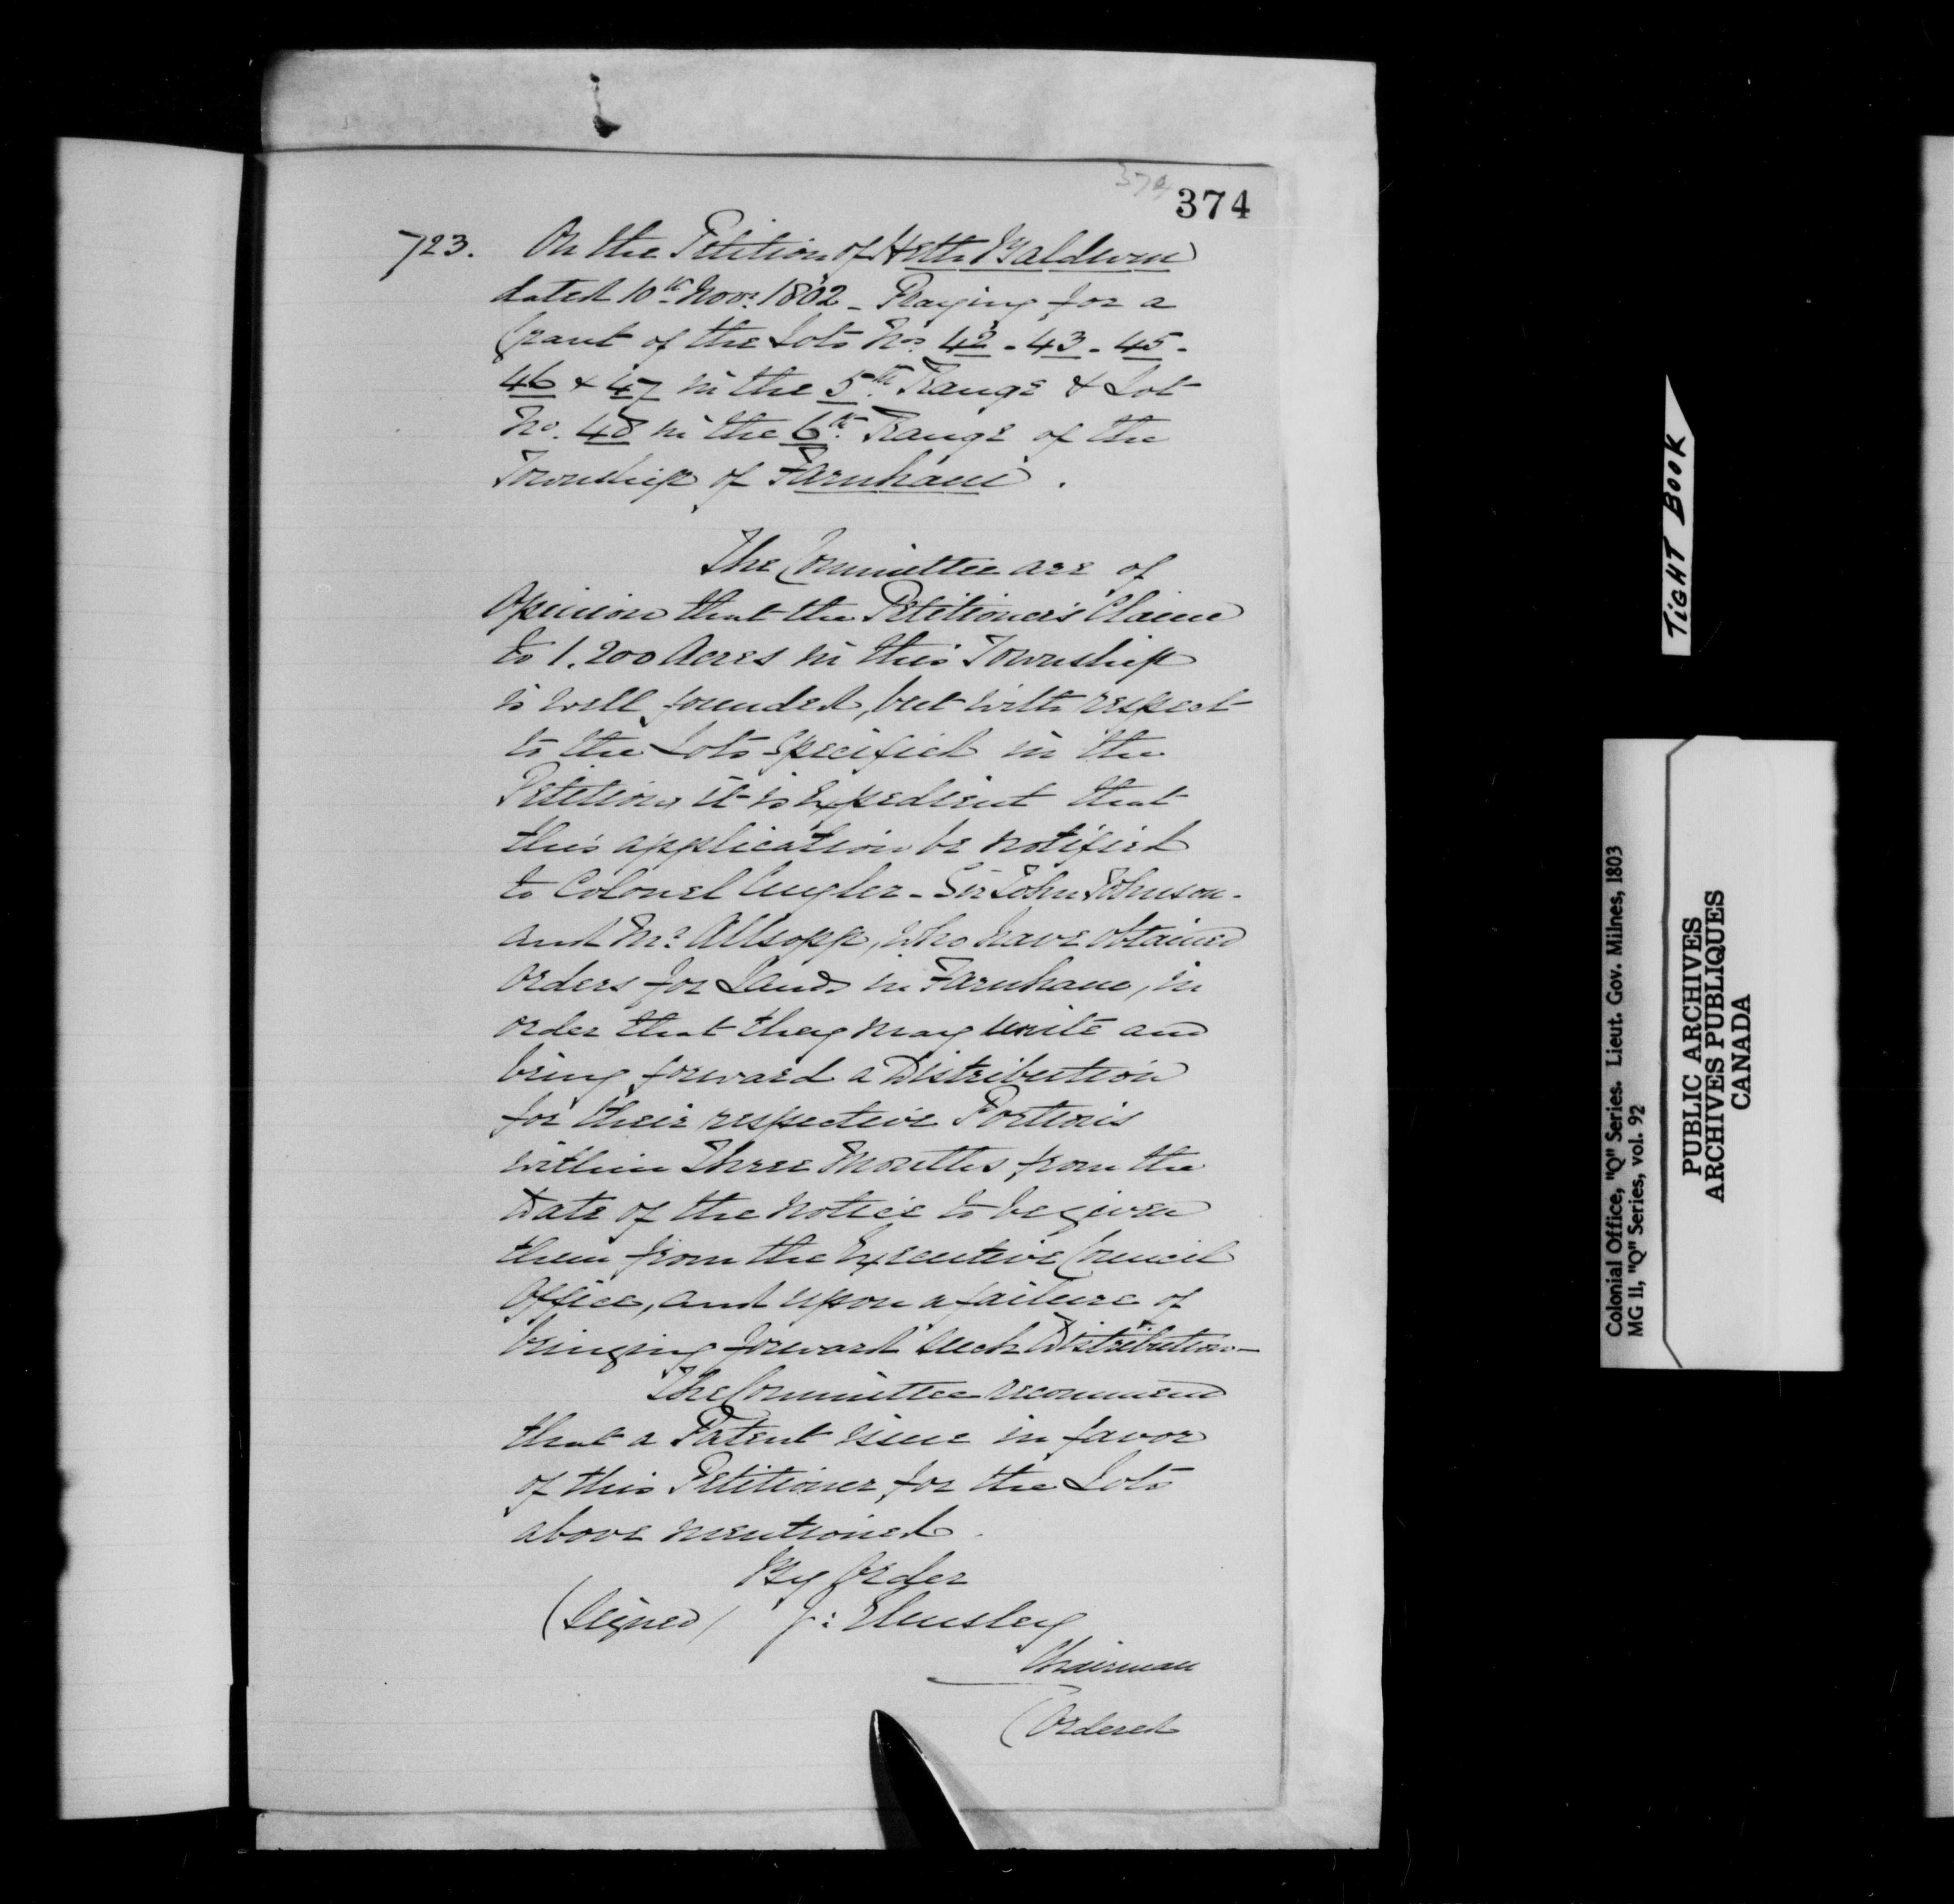 374
374
723. On the Petition of Heth Baldwin
dated 10th Novr. 1802 - Praying for a
Grant of the Lots Nos. 42 - 43 - 45 -
46 & 47 in the 5th. Range & Lot
No. 48 in the 6th. Range of the
Township of Farnham.
The Committee are of
Opinion that the Petitioner's Claim
to 1.200 Acres in this Township
is well founded, but with respect
to the Lots specified in the
Petition, it is expedient that
this application be notified
to Colonel Cuyler - Sir John Johnson -
and Mr. Allsopp, who have obtained
orders for Lands in Farnham, in
order that they may unite and
bring forward a Distribution
for their respective Portions
within Three Months from the
Date of the notice to be given
them from the Executive Council
Office, and upon a failure of
bringing forward such Distribution -
The Committee recommend
that a Patent issue in favor
of this Petitioner for the Lots
above mentioned.
By Order
(Signed) J: Elmsley
Chairman
(Ordered
TIGHT BOOK
Colonial Office, "Q" Series. Lieut. Gov. Milnes, 1803
MG 11, "Q" Series, vol. 92
PUBLIC ARCHIVES
ARCHIVES PUBLIQUES
CANADA